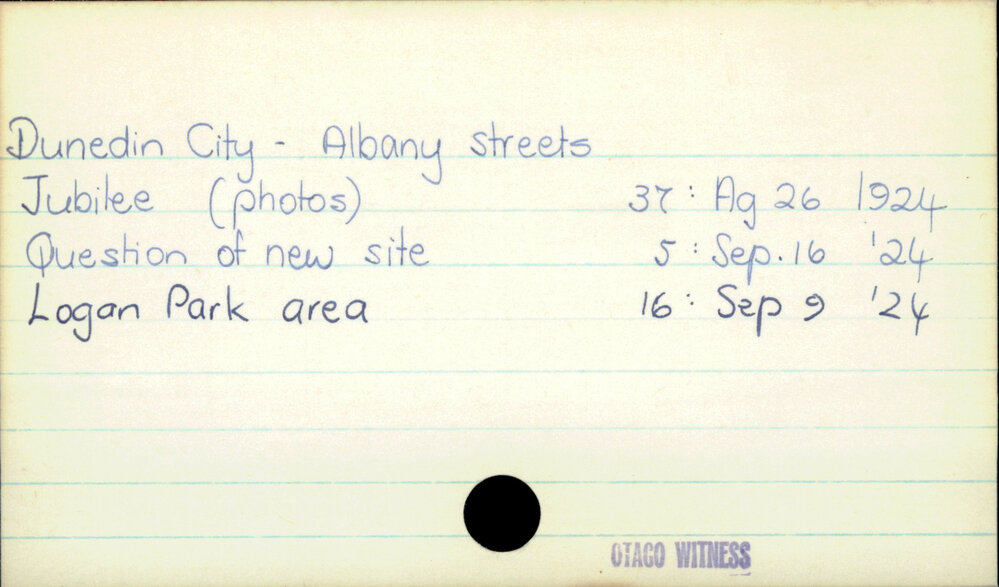 Dunedin City - Albany streets
Jubilee (photos) 37: Ag 26 1924
Question of new site 5: Sep. 16 '24
Logan Park area 16: Sep 9 '24
OTAGO WITNESS